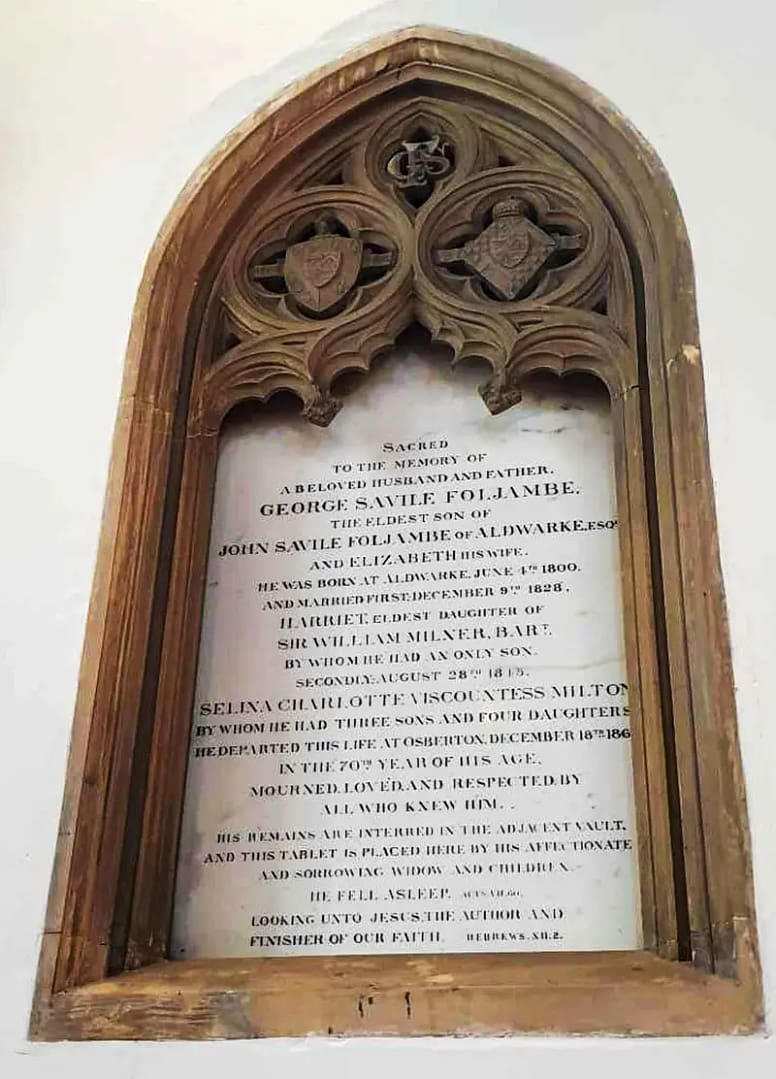 GFS
SACRED
TO THE MEMORY OF
A BELOVED HUSBAND AND FATHER.
GEORGE SAVILE FOLJAMBE.
THE ELDEST SON OF
JOHN SAVILE FOLJAMBE OF ALDWARKE, ESQR
AND ELIZABETH HIS WIFE.
HE WAS BORN AT ALDWARKE, JUNE 4TH 1800.
AND MARRIED FIRST, DECEMBER 9TH 1828.
HARRIET, ELDEST DAUGHTER OF
SIR WILLIAM MILNER, BART.
BY WHOM HE HAD AN ONLY SON.
SECONDLY, AUGUST 28TH 1845.
SELINA CHARLOTTE VISCOUNTESS MILTON
BY WHOM HE HAD THREE SONS AND FOUR DAUGHTERS
HE DEPARTED THIS LIFE AT OSBERTON, DECEMBER 18TH 186
IN THE 70TH YEAR OF HIS AGE,
MOURNED, LOVED, AND RESPECTED, BY
ALL WHO KNEW HIM.
HIS REMAINS ARE INTERRED IN THE ADJACENT VAULT,
AND THIS TABLET IS PLACED HERE BY HIS AFFECTIONATE
AND SORROWING WIDOW AND CHILDREN.
HE FELL ASLEEP. ACTS VII.60.
LOOKING UNTO JESUS, THE AUTHOR AND
FINISHER OF OUR FAITH. HEBREWS. XII. 2.